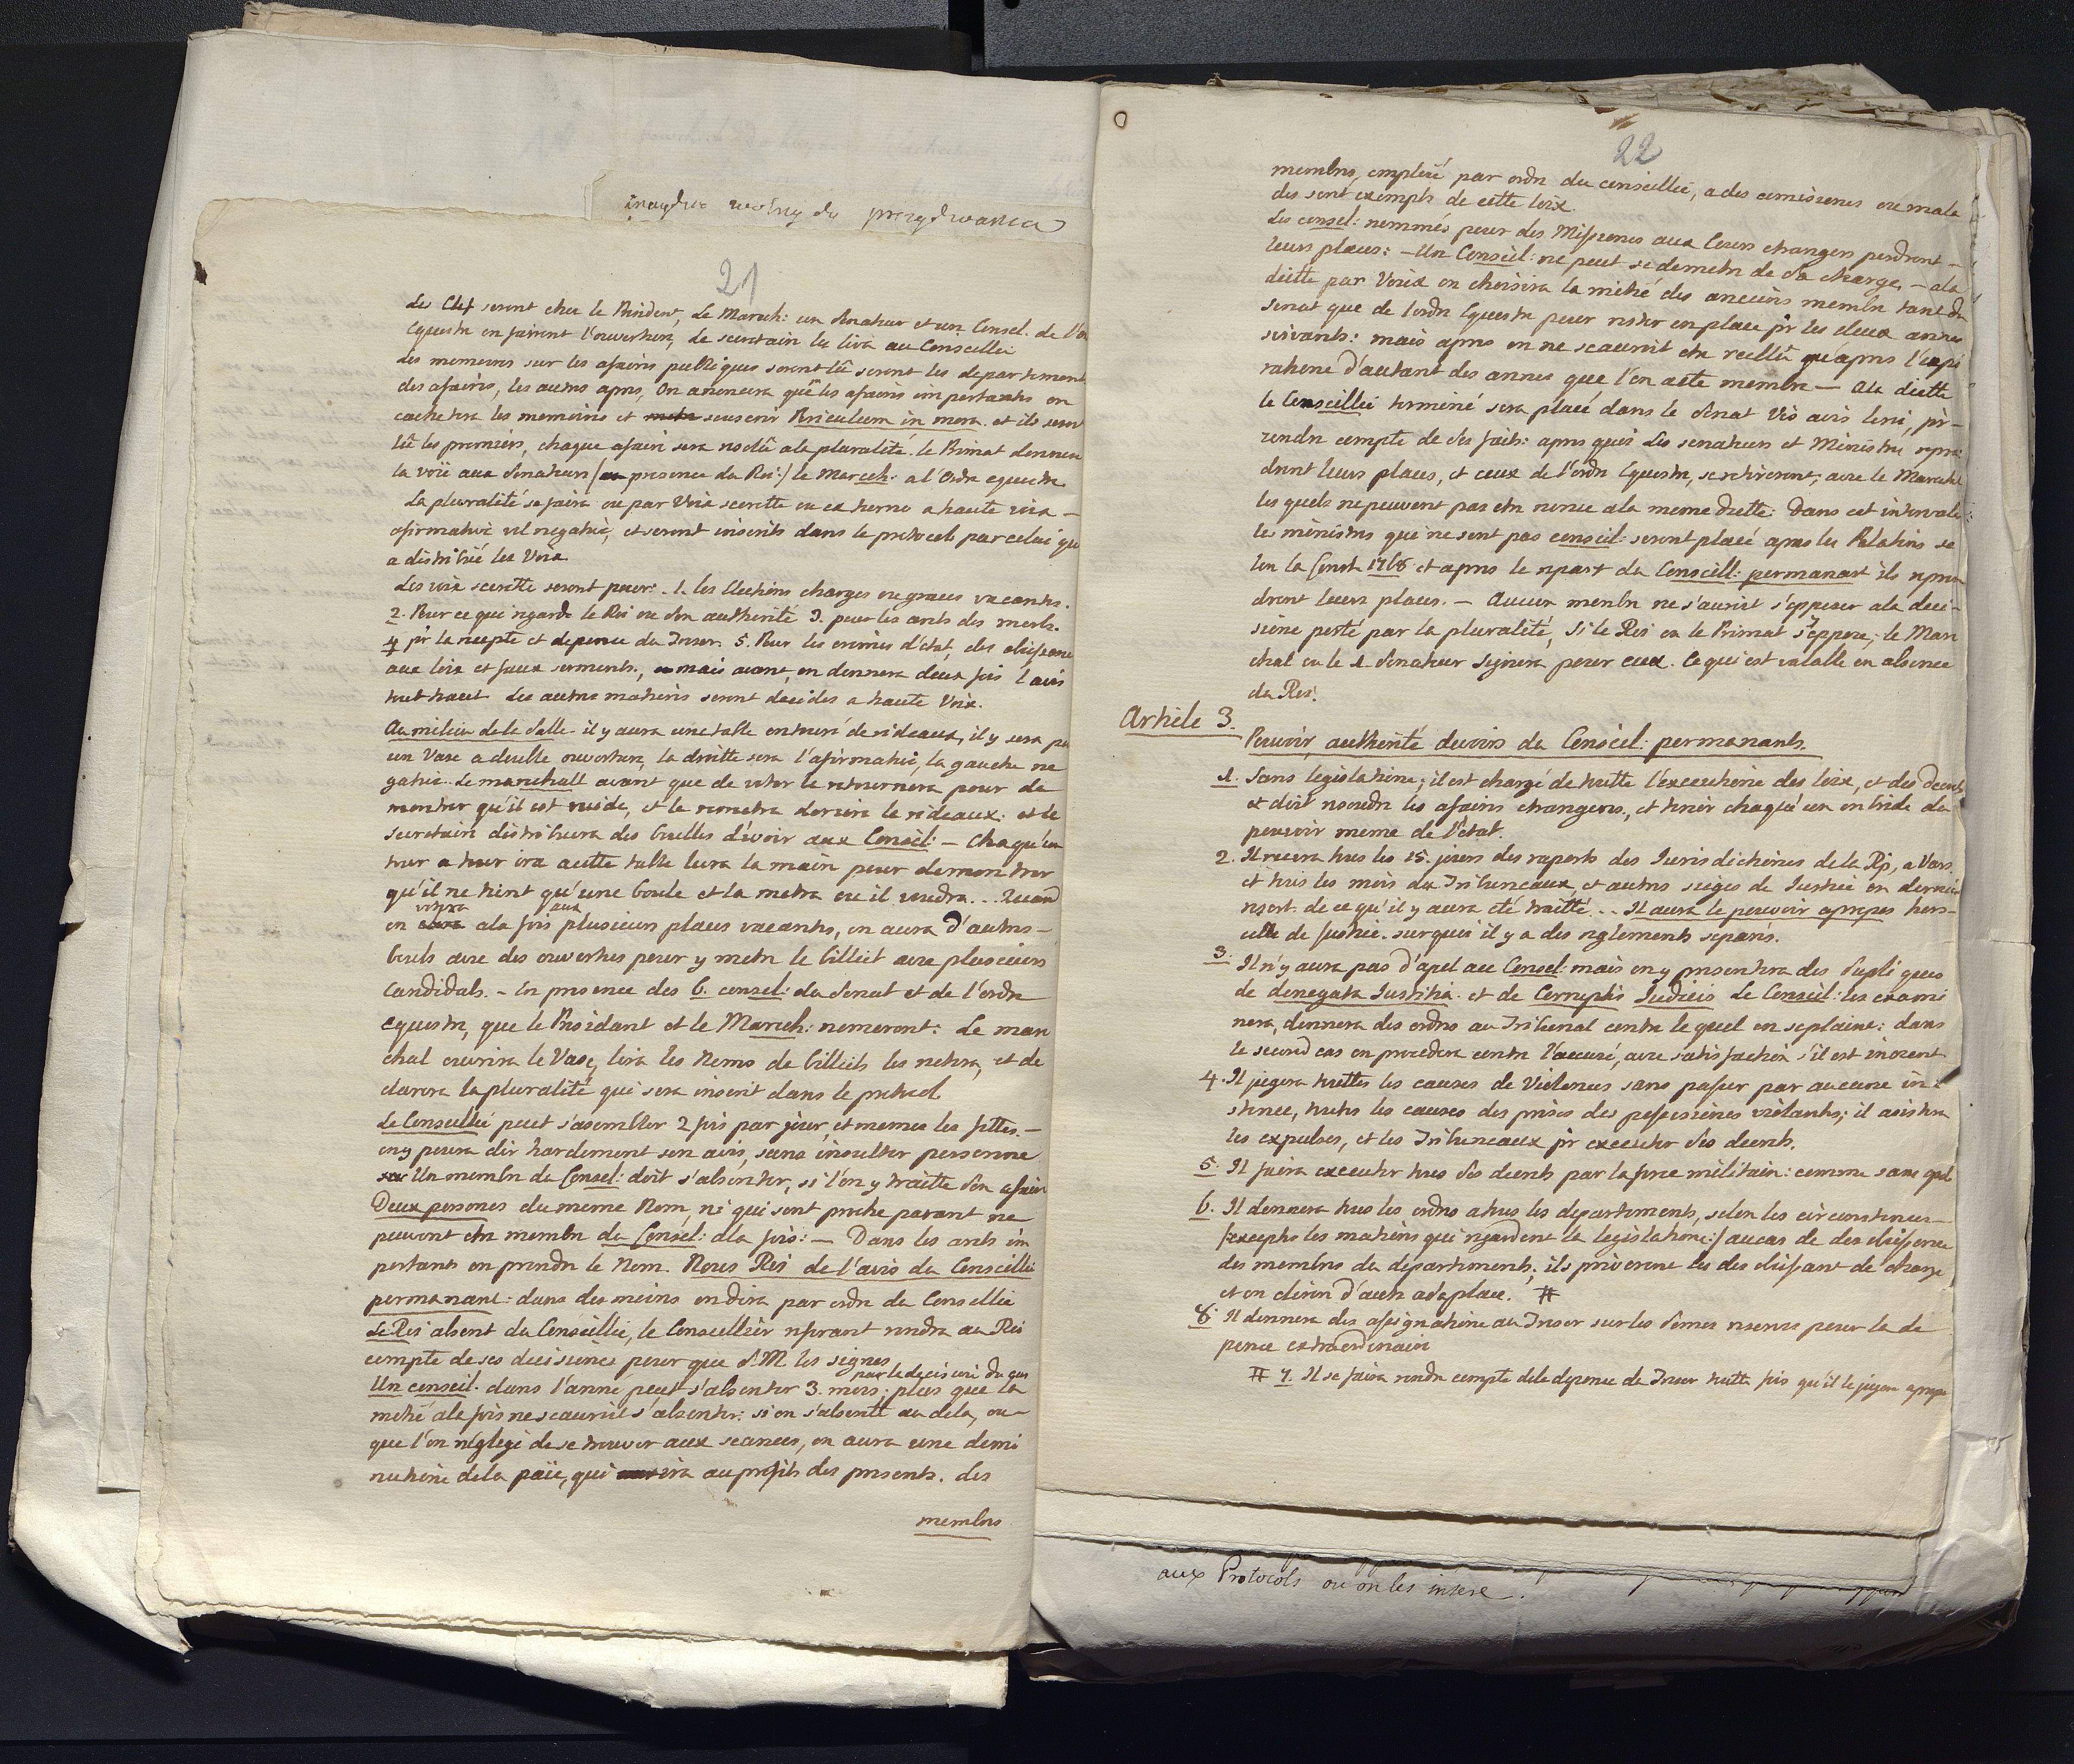 21
Les Clef seront chez le Président, Le Marech: un Senateur et un Consel. de l'or
Equestre en fairont l'ouverture, Le secretaire les lira au Conseillié
Les memoires sur les afaires publiques seront lû seront les departement
des afaires, les autres apres, On anoncera que les afaires importantes on
cachetera les memoires et souscrir Periculum in mora. et ils seront
lû les premiers, chaque afaire sera resolû ala pluralité. le Primat donnera
la voïe aux Senateurs /: presence du Roi :/ le Marech: a l'Ordre equestre
La pluralité se faira ou par Voix secrette ou externe a haute voix –
afirmative vel negative, et seront inserits dans le protocole par celui qui
a distribué les Voix.
Les voix secrette seront pour: 1. les Elections charges ou graces vacantes.
2. Pour ce qui regarde le Roi ou son authorité 3. pour les arets des morts.
4 pr la recepte et depence du Tresor. 5. Pour les crimes d'etat, des obeissence
aux loix et faux serments, mais avant, on donnera deux fois l'avis
tout haut Les autres matieres seront decidés a haute Voix.
Au milieu de la Salle il y aura une table entouré de rideaux, il y sera
un Vase a double ouverture, la droitte sera l'afirmative, la gauche ne
gative. Le marechall avant que de voter le retournera pour de
montrer qu'il est vuide, et le remetra deriere le rideaux: et le
Secretaire distribuera des boulles d'ivoir aux Conseil: – Chaqu'un
tour a tour ira acette table levra la main pour demontrer
qu'il ne tient qu'une boule et la metra ou il voudra... Quand
on votera ala fois aux plusieurs places vacantes, on aura d'autres –
bouls avec des ouvertures pour y metre le billiet avec plusieurs
Candidats. – En presence des 6. consel: du Senat et de l'ordre
equestre, que le Président et le Marech: nomeront: Le mare
chal ouvrira le Vase, lira les Noms de billiets les , et de
clarera la pluralité qui sera inserit dans le protocol
Le Conseillié peut s'asembler 2 fois par jour, et memes les fettes. –
on y poura dir hardement son avis, sans insulter personne
Un membre du Consel: doit s'absenter, si l'on y traitte son afaire
Deux persones du meme Nom, ni qui sont proche parant ne
peuvent etre membre du Consel: ala fois: – Dans les arets im
portants on prendre le Nom. Nous Roi de l'avis du Conseillié
permanant: dans des moins on dira par ordre du Conseillié
Le Roi absent du Conseillié, le Conseillier referant rendra au Roi
compte de ses decisions pour que S. M. les signes
par le decisions du
Un conseil. dans l'anné peut s'absenter 3. mois; plus que la
metié ala fois ne scauroit s'absenter: si on s'absente au dela, ou –
que l'on néglégé de se trouver aux seances, on aura une dimi
nutione de la païe, qui ira au profits des presents. des
membres
22
membres, emploié par ordre du conseillié, a des comissiones ou mala
des sont exempts de cette loix.
Les consel: nommés pour des Missiones aux Cours etrangers perdront –
leurs places: – Un Conseil: ne peut se demetre de sa charge, – ala
diette par Voix on choisira la mitié des anciens membre tant du
Senat que de l'ordre Equestre pour rester en place pr les deux annes
suivants: mais apres on ne scauroit etre reellû qu'apres l'expi
ratione d'autant des annes que l'on aete membre – Ala diette
le Conseillié terminé sera placé dans le Senat Vis avis , pr –
rendre compte de ses faits: apres quoi Les senateurs et Ministre repren
dront leurs places, et ceux de l'ordre Equestre, se retireront; avec le Marechal
les quels ne peuvent pas etre nonce ala meme diette: Dans cet intervale:
les ministres qui ne sont pas conseil: seront placé apres les Palatins se
lon la Const 1768 et apres le  du Conseill: permanant ils repren
dront leurs places. – Aucun membre ne s'auroit s'opposer ala deci –
sione porté par la pluralité, Si le Roi ou le Primat s'y oppose, le Mare
chal ou le 1 Senateur signera pour eux. Ce qui est valable en absence
du Roi.
Article 3.
Pouvoir, authorité devoirs du Conseil: permanants.
1. Sans legislatione; il est chargé de toutte l'executione des loix, et des decrets,
et doit resoudre les afaires etrangeres, et tenir chaqu'un en bride du
pouvoir meme de l'état.
2. Il recevra tous les 15. jours des raports des Jurisdictiones de la Rp, a Vars.
et tous les mois des Tribuneaux, et autres sieges de Justice en dernier
resort. de ce qu'il y aura eté traitté... Il aura le pouvoir apropes hors –
celle de justice. sur quoi il y a des reglements separés.
3. Il n'y aura pas d'apel au Consel: mais on y presentera des Supliques
de denegata Justitia. et de Corruptis Judiciis Le Conseil: les exami
nera, donnera des ordres au Tribunal contre le quel on se plaine: dans
le second cas on procedera contre l'accusé, avec satisfaction s'il est inozent
4. Il jugera touttes les causes de Violences sans passer par aucune in
stence, toutes les causes des prises des possessiones violantes; il asistera
les expulses, et les Tribuneaux pr executer ses decrets.
5. Il faira executer tous ses decrets par la force militaire: comme sans apel
6. Il donnera tous les ordres a tous les departements, selon les circonstences –
/:exceptes les matieres qui regardent la legislatione:/ au cas de des obeissence
des membres du departements; ils priverone les des obeissant de charge
et on elirera d'autre a sa place. #
8. Il donnera des assignatione au Tresor sur les Somes reserves pour la de
pence extraordinaire
# 7. Il se faira rendre compte dela depence de Tresor toutte fois qu'il le jugera apropo
aux Protocols ou on les insere.